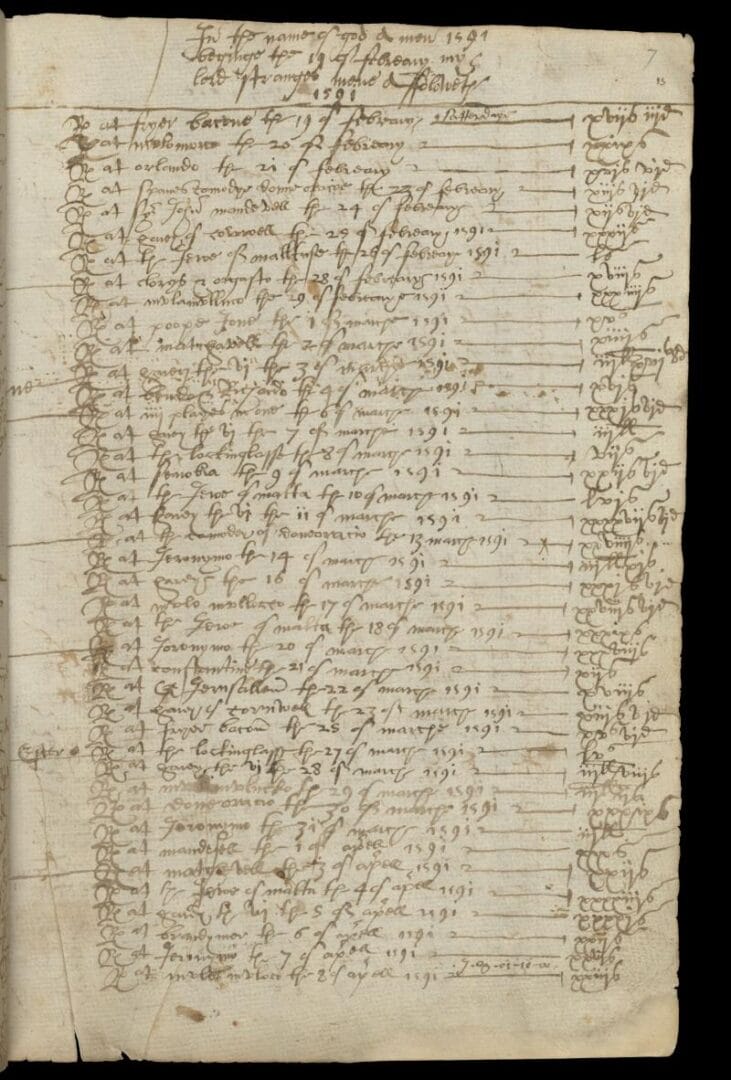 7
In the name of god A men 1591
beginge the 19 of febreary my
lord stranges mene A ffoloweth
1591
Rd at fryer bacvne the 19 of febreary satterdaye xvijs iijd
Rd at mvlomvrco the 20 of febreary xxixs
Rd at orlando the 21 of febreary xvjs vjd
Rd at spanes comodye donne oracioe the 23 of febreary xiijs vjd
Rd at syr John mandevell the 24 of febreary xijs vjd
Rd at harey of cornwell the 25 of febreary 1591 xxxijs
Rd at the Jewe of malltuse the 26 of febreary 1591 ls
Rd at clorys & orgasto the 28 of febreary 1591 xviijs
Rd at mvlamvlluco the 29 of febrearye 1591 xxxiiijs
Rd at poope Jone the 1 of marche 1591 xvs
Rd at matchavell the 2 of marche 1591 xiiijs
ne Rd at harey the vj the 3 of marche 1591 iijll xvjs 8d
Rd at bendo & Richardo the 4 of marche 1591 xvjs
Rd at iiij playes in one the 6 of marche 1591 xxxjs vjd
Rd at harey the vj the 7 of marche 1591 iijll
Rd at the lockinglasse the 8 of marche 1591 vijs
Rd at senobia the 9 of marche 1591 xxijs vjd
Rd at the Jewe of malta the 10 of marche 1591 lvjs
Rd at harey the vj the 11 of marche 1591 xxxxvijs vjd
Rd at the comodey of doneoracio the 13 marche 1591 xxviiijs
Rd at Jeronymo the 14 of march 1591 iijll xjs
Rd at harey the 16 of marche 1591 xxxjs vjd
Rd at mvlo mvllocco the 17 of marche 1591 xxviijs vjd
Rd at the Jewe of malta the 18 of marche 1591 xxxixs
Rd at Joronymo the 20 of marche 1591 xxxviijs
Rd at constantine the 21 of marche 1591 xijs
Rd at Jerusallem the 22 of marche 1591 xviijs
Rd at harey of cornwell the 23 of marche 1591 xiijs vjd
Rd at fryer bacon the 25 of marche 1591 xvs vjd
Ester Rd at the lockinglasse the 27 of marche 1591 lvs
Rd at harey the vj the 28 of marche 1591 iijll viijs
Rd at mvlimvlucko the 29 of marche 1591 iijll ijs
Rd at doneoracio the 30 of marche 1591 xxxixs
Rd at Joronymo the 31 of marche 1591 iijll
Rd at mandefell the 1 of aprell 1591 xxxs
Rd at matchevell the 3 of aprell 1591 xxijs
Rd at the Jewe of malta the 4 of aprell 1591 xxxxiijs
Rd at harey the vj the 5 of aprell 1591 xxxxjs
Rd at brandymer the 6 of aprell 1591 xxijs
Rd at Jeronymo the 7 of aprell 1591 xxvjs
Rd at mvle mvloco the 8 of aprell 1591 xxiijs